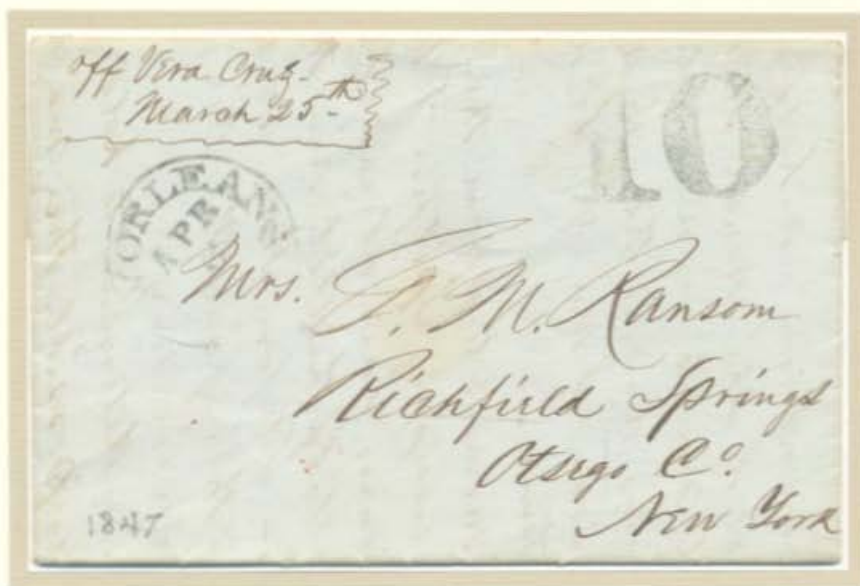 off Vera Cruz-
March 25th
10
ORLEANS
APR
Mrs. T. M. Ransom
Richfield Springs
Otsego Co.
New York
1847